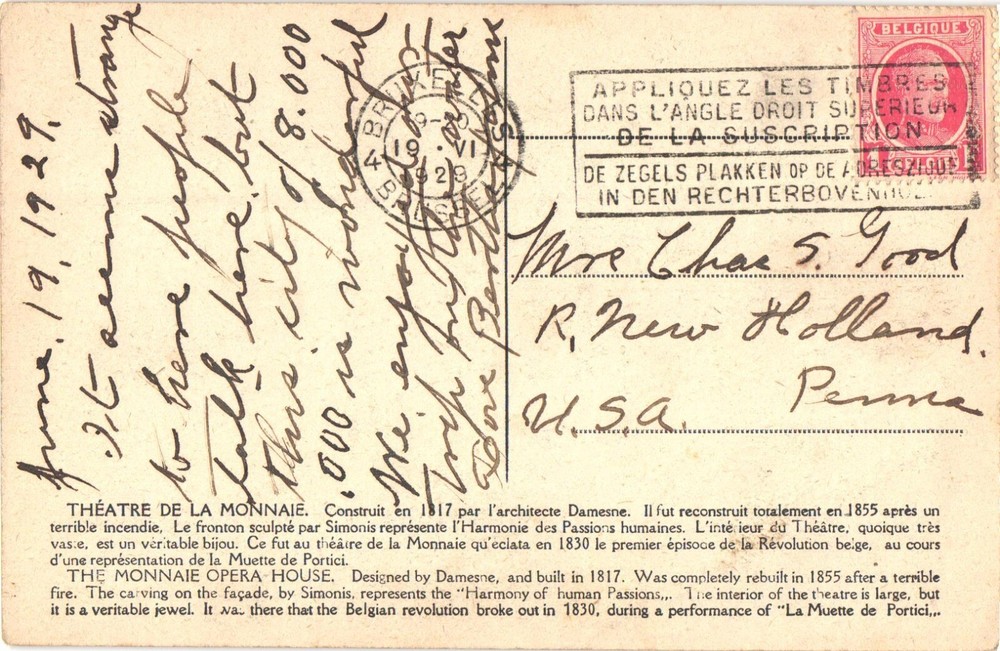 June, 19, 1929,
It seems strange
to hear people
talk here, but
this city of 8.000
.000 is wonderful
We enjoy
trip
Love
BRUXELLES
4
19 VI
1929
BRUSSEL
BELGIQUE
BELGIE
APPLIQUEZ LES TIMBRES
DANS L'ANGLE DROIT SUPERIEUR
DE LA SUSCRIPTION
DE ZEGELS PLAKKEN OP DE ADRESZIJDE
IN DEN RECHTERBOVENHOEK
Mrs Chas S. Good
R, New Holland.
Penna
U.S.A.
THÉATRE DE LA MONNAIE. Construit en 1817 par l'architecte Damesne. Il fut reconstruit totalement en 1855 après un
terrible incendie. Le fronton sculpté par Simonis représente l'Harmonie des Passions humaines. L'intérieur du Théâtre, quoique très
vaste, est un véritable bijou. Ce fut au théâtre de la Monnaie qu'éclata en 1830 le premier épisode de la Révolution belge, au cours
d'une représentation de la Muette de Portici.
THE MONNAIE OPERA HOUSE. Designed by Damesne, and built in 1817. Was completely rebuilt in 1855 after a terrible
fire. The carving on the façade, by Simonis, represents the "Harmony of human Passions,,. The interior of the theatre is large, but
it is a veritable jewel. It was there that the Belgian revolution broke out in 1830, during a performance of "La Muette de Portici,,.